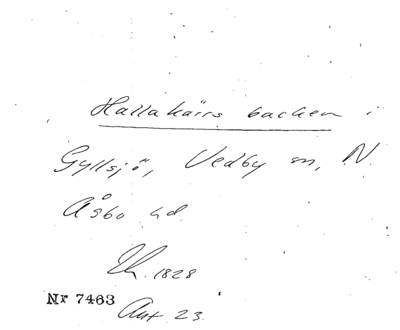 Hallakärrs backen i
Gyllsjö, Vedby sn, N.
Åsbo hd.
1828
Nr 7463
Ant. 23.